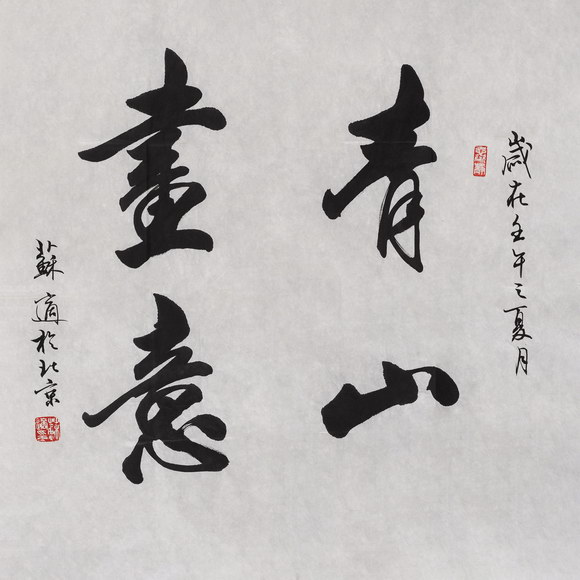 歲在壬午之夏月
青山
畫意
蘇適於北京